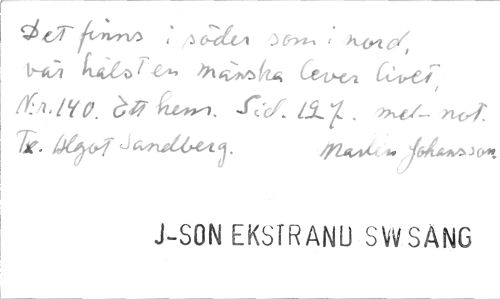 Det finns i söder som i nord,
var hälst en mänska lever livet,
N:r. 140. Ett hem. Sid. 127. mel- not.
Tx. Algot Sandberg. Martin Johansson.
J-SON EKSTRAND SW SÅNG